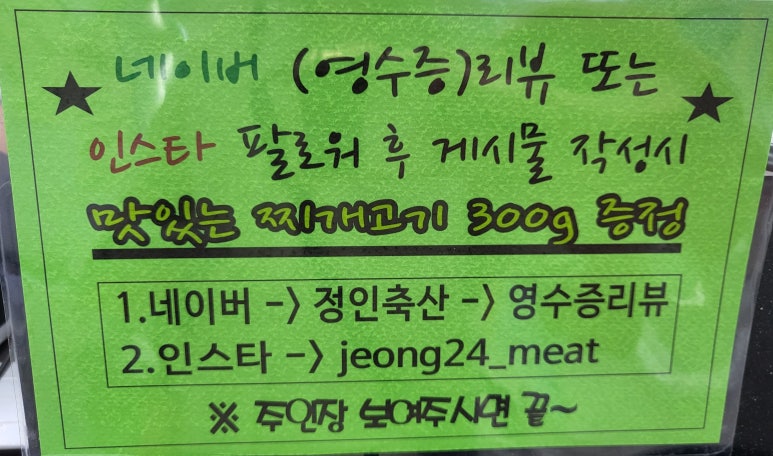 ★ 네이버 (영수증)리뷰 또는 ★
인스타 팔로워 후 게시물 작성시
맛있는 찌개고기 300g 증정
1.네이버 -> 정인축산 -> 영수증리뷰
2.인스타 -> jeong24_meat
※ 주인장 보여주시면 끝~